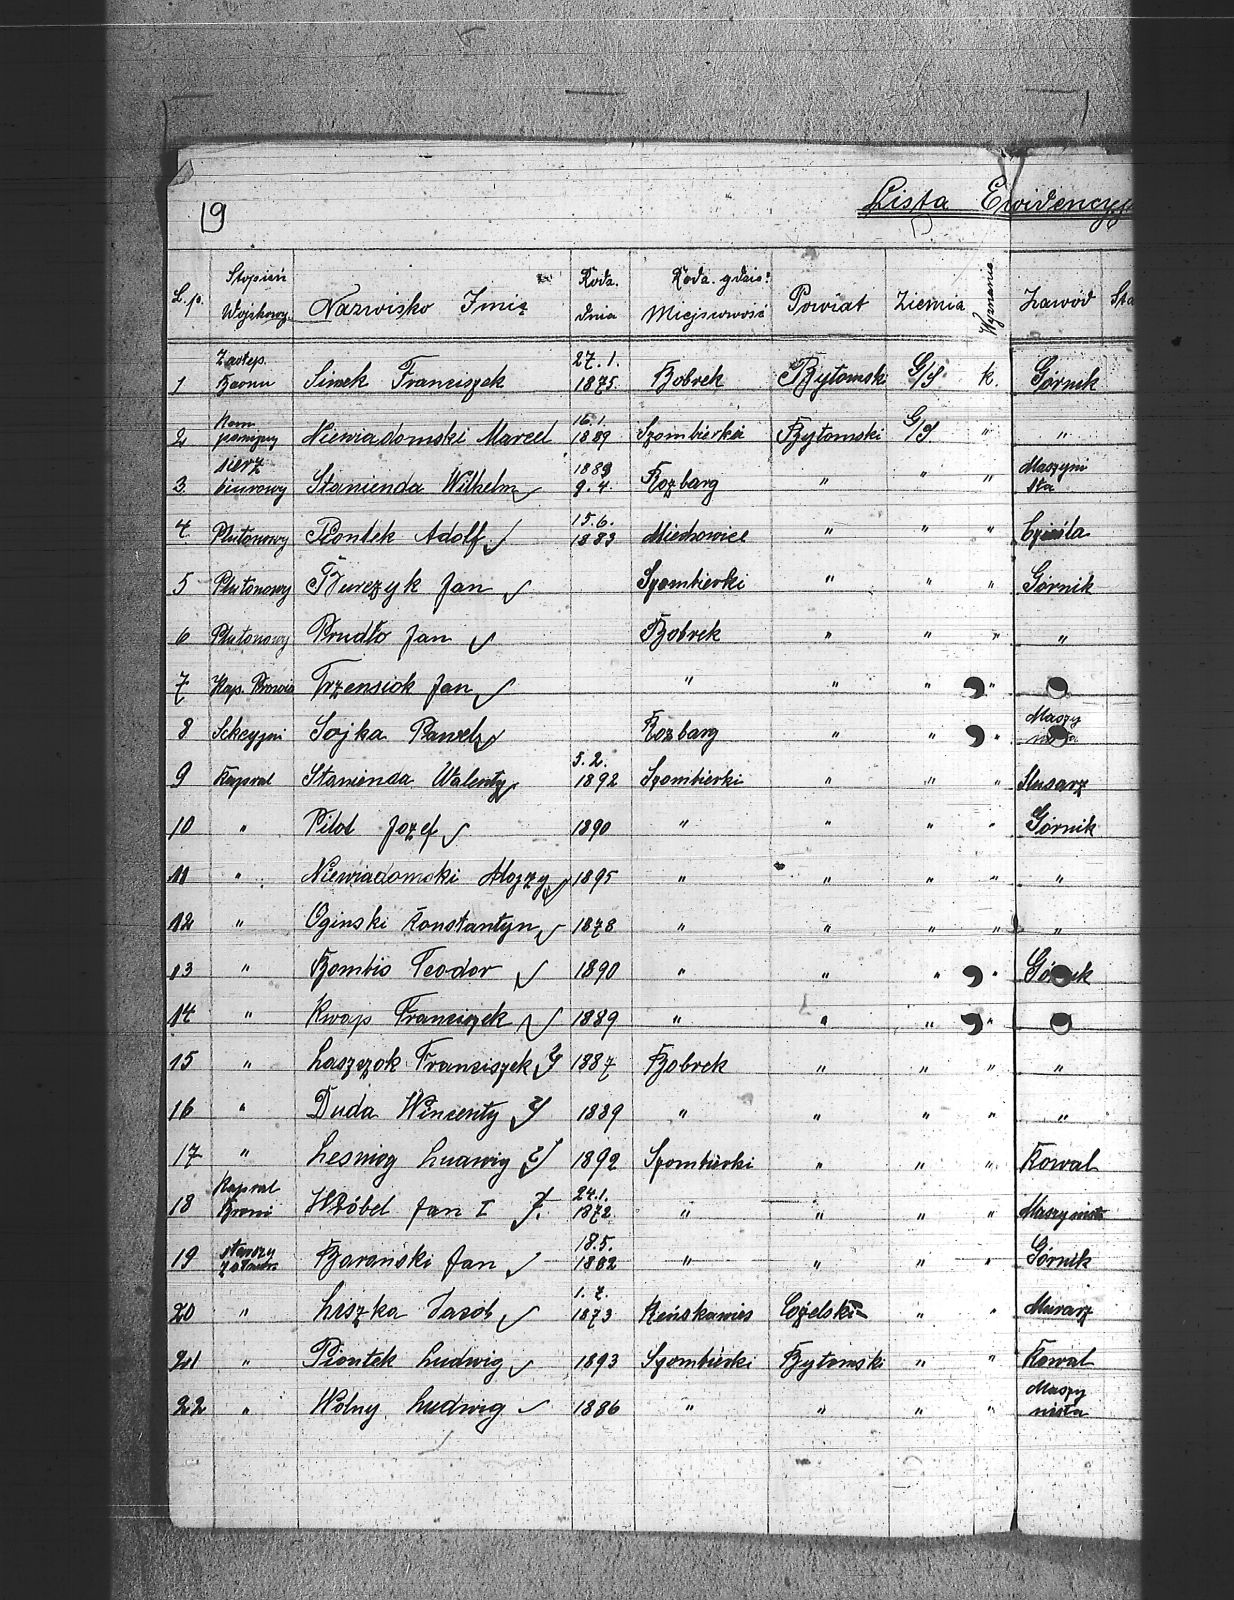 19
Lista Ewidencyj
L.p. Stopień Wojskowy Nazwisko Imię Rodz. dnia Rodz. gdzie? Miejscowość Powiat Ziemia Wyznanie Zawód Sta
1 Zastęp. Baonu Sinek Franciszek 27.1. 1875 Bobrek Bytomski G/S k. Górnik
2 Kom panijny Niewiadomski Marcel 16.1. 1889 Szombierki Bytomski G/S " "
3. sierż biurowy Stanienda Wilhelm 1889 9.4. Rozbarg " " " Maszyni sta
4 Plutonowy Piontek Adolf 15.6. 1883 Miechowice " " " Cieśla
5 Plutonowy Burczyk Jan Szombierki " " " Górnik
6 Plutonowy Prudło Jan Bobrek " " " "
7 Kap. Prowia Trzensiok Jan " " " "
8 Sekcyjni Sojka Pawel Rozbarg " " " Maszy nista
9 Kapral Stanienda Walenty 5.2. 1892 Szombierki " " " Slusarz
10 " Pilot Jozef 1890 " " " " Górnik
11 " Niewiadomski Alojzy 1895 " " " " "
12 " Oginski Konstantyn 1878 " " " " "
13 " Bombis Teodor 1890 " " " " Górnik
14 " Kwap Franciszek 1889 " " " "
15 " Laszczok Franciszek 1887 Bobrek " " " "
16 " Duda Wincenty 1889 " " " " "
17 " Lesniog Ludwig 1892 Szombierki " " " Kowal
18 Kapral Broni Wróbel Jan I 24.1. 1872 " " " " Maszynista
19 starszy Barański Jan 18.5. 1882 " " " " Górnik
20 " Liszka Jacob 1.7. 1873 Reńskawieś Cozelski " " Murarz
21 " Piontek Ludwig 1893 Szombierki Bytomski " " Kowal
22 " Wolny Ludwig 1886 " " " " Maszy nista